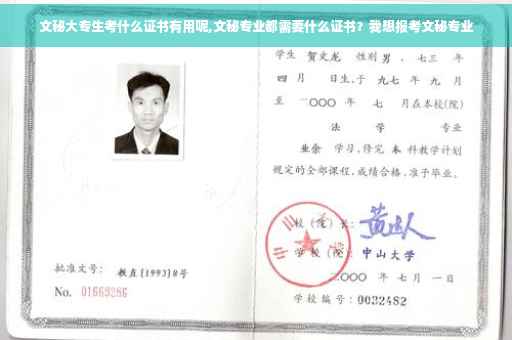 文秘大专生考什么证书有用呢,文秘专业都需要什么证书？我想报考文秘专业
学生 贺文龙 性别 男 、七三 年
四 月 日生,于 九七 年 九 月
至 二〇〇〇 年 七 月在本校(院)
法 学 专业
业余 学习,修完 本 科教学计划
规定的全部课程,成绩合格,准予毕业。
校(院)长:
学校(院): 中山大学
二〇〇〇 年 七 月 一 日
批准文号: 教直(1993)8号
No. 01669286
学校编号: 0032482